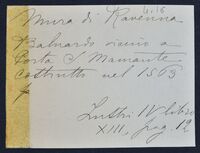 4.16
Mura di Ravenna
Baluardo vicino a
Porta S. Mamante
costrutto nel 1503
Lustri IV libro
XIII, pag. 12